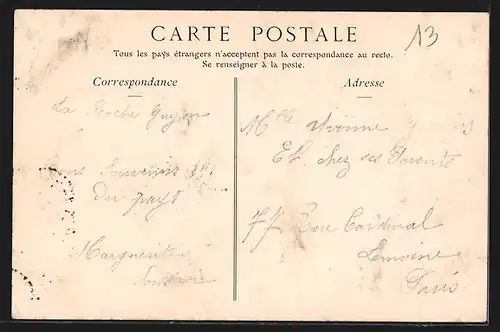 CARTE POSTALE
13
Tous les pays étrangers n'acceptent pas la correspondance au recto.
Se renseigner à la poste.
Correspondance
La Roche Guyon
Bons Souvenirs
Du pays
Marguerite
Adresse
Mlle Yvonne
Et. chez ses Parents
77 Rue Cardinal
Lemoine
Paris